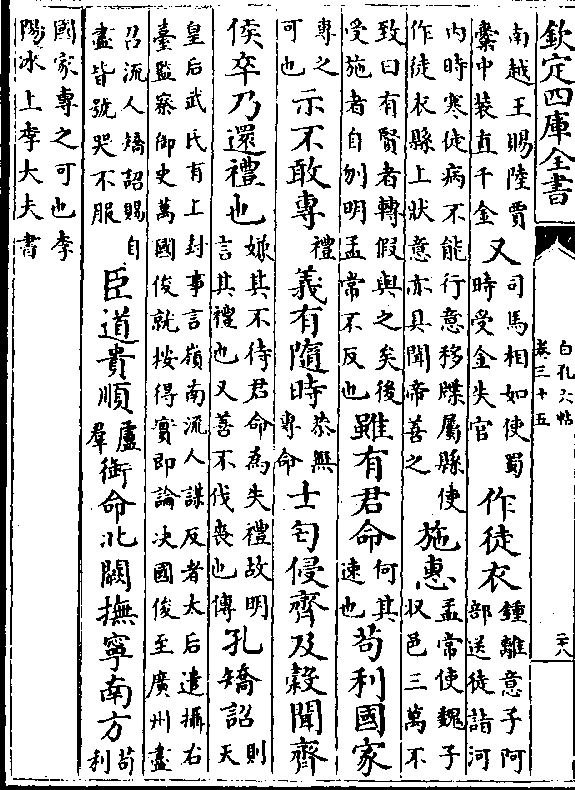 欽定四庫全書
白孔六帖
卷三十五
二十八
南越王賜陸賈
橐中装直千金
又
司馬相如使蜀
時受金失官
作徒衣
鍾離意子阿
部送徒詣河
内時寒徒病不能行意移牒屬縣使
作徒衣縣上狀意亦具聞帝善之
施惠
孟常使魏子
収邑三萬不
致曰有賢者轉假與之矣後
受施者自刎明孟常不反也
雖有君命
何其
速也
苟利國家
專之
可也
示不敢專
禮
義有隨時
恭無
專命
士匄侵齊及穀聞齊
侯卒乃還禮也
嫌其不待君命為失禮故明
言其禮也又善不伐喪也傳
孔矯詔
則
天
皇后武氏有上封事言嶺南流人謀反者太后遣攝右
臺監察御史萬國俊就按得實即論决國俊至廣州盡
召流人矯詔賜自
盡皆號哭不服
臣道貴順
盧
羣
銜命北闕撫寧南方
苟
利
國家專之可也李
陽冰上李大夫書